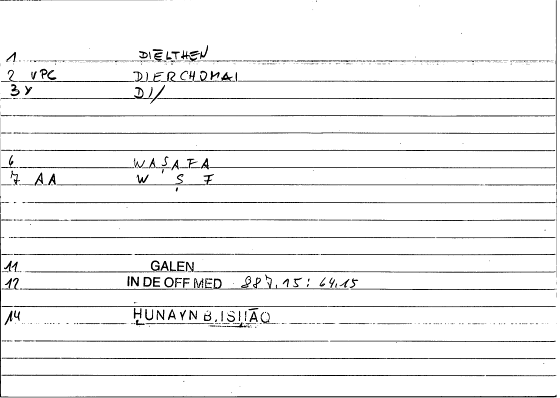 1 DIĒLTHEN
2 VPC DIERCHOMAI
3 Y DI/
6 WAṢAFA
7 AA W Ṣ F
11 GALEN
12 IN DE OFF MED 887,15: 64,15
14 ḤUNAYN B. ISḤĀQ